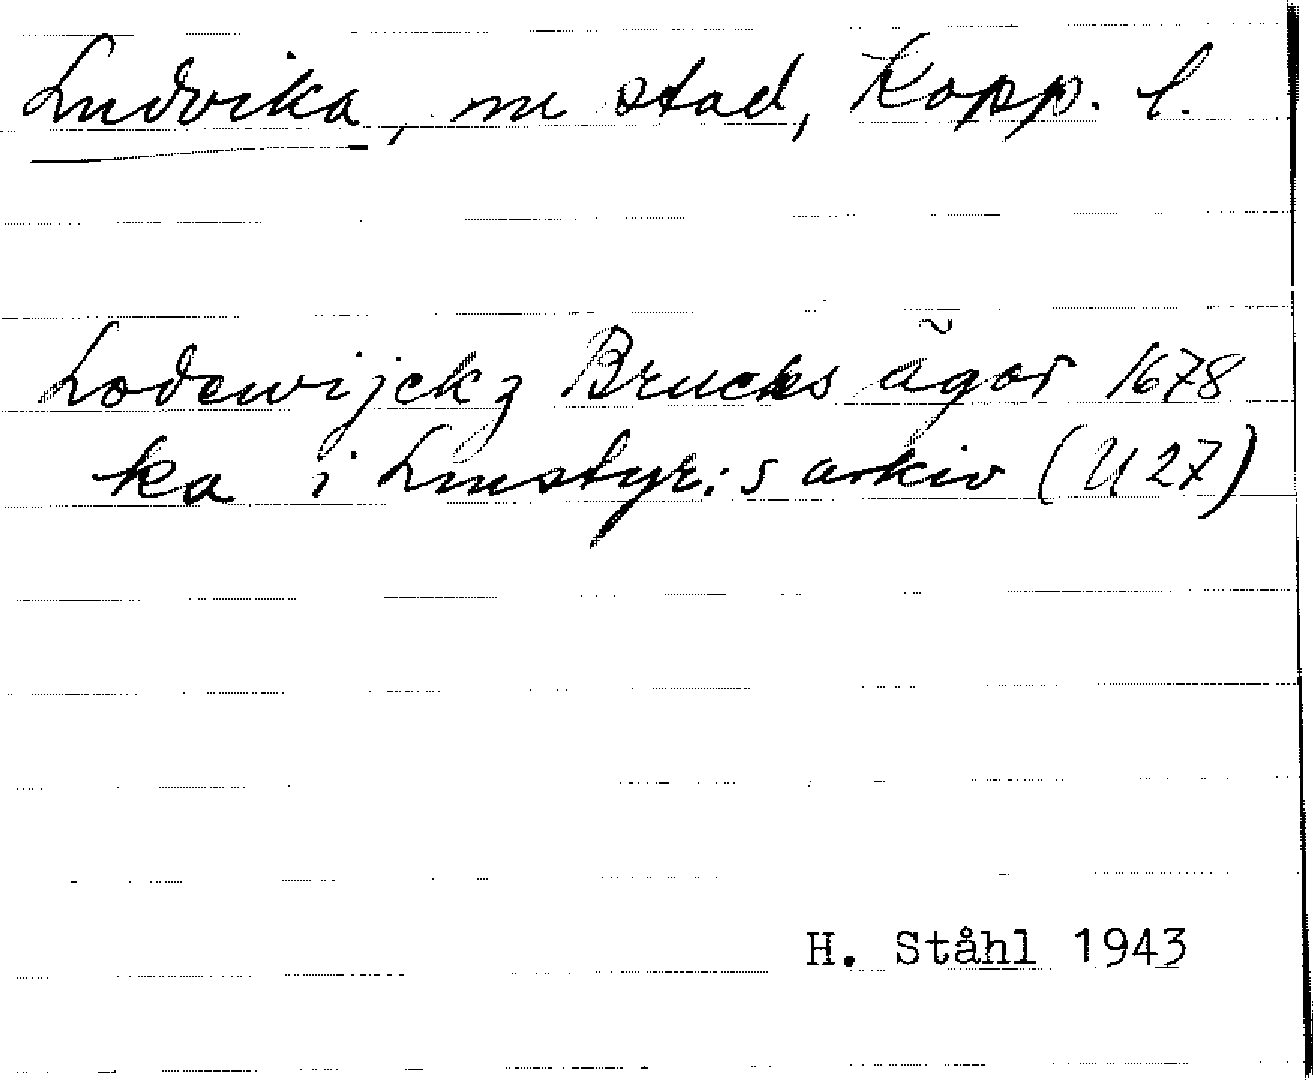 Ludvika, nu stad, Kopp. l.
Lodewijckz Brucks ägor 1678
ka i Lmstyr:s arkiv (U 27)
H. Ståhl 1943